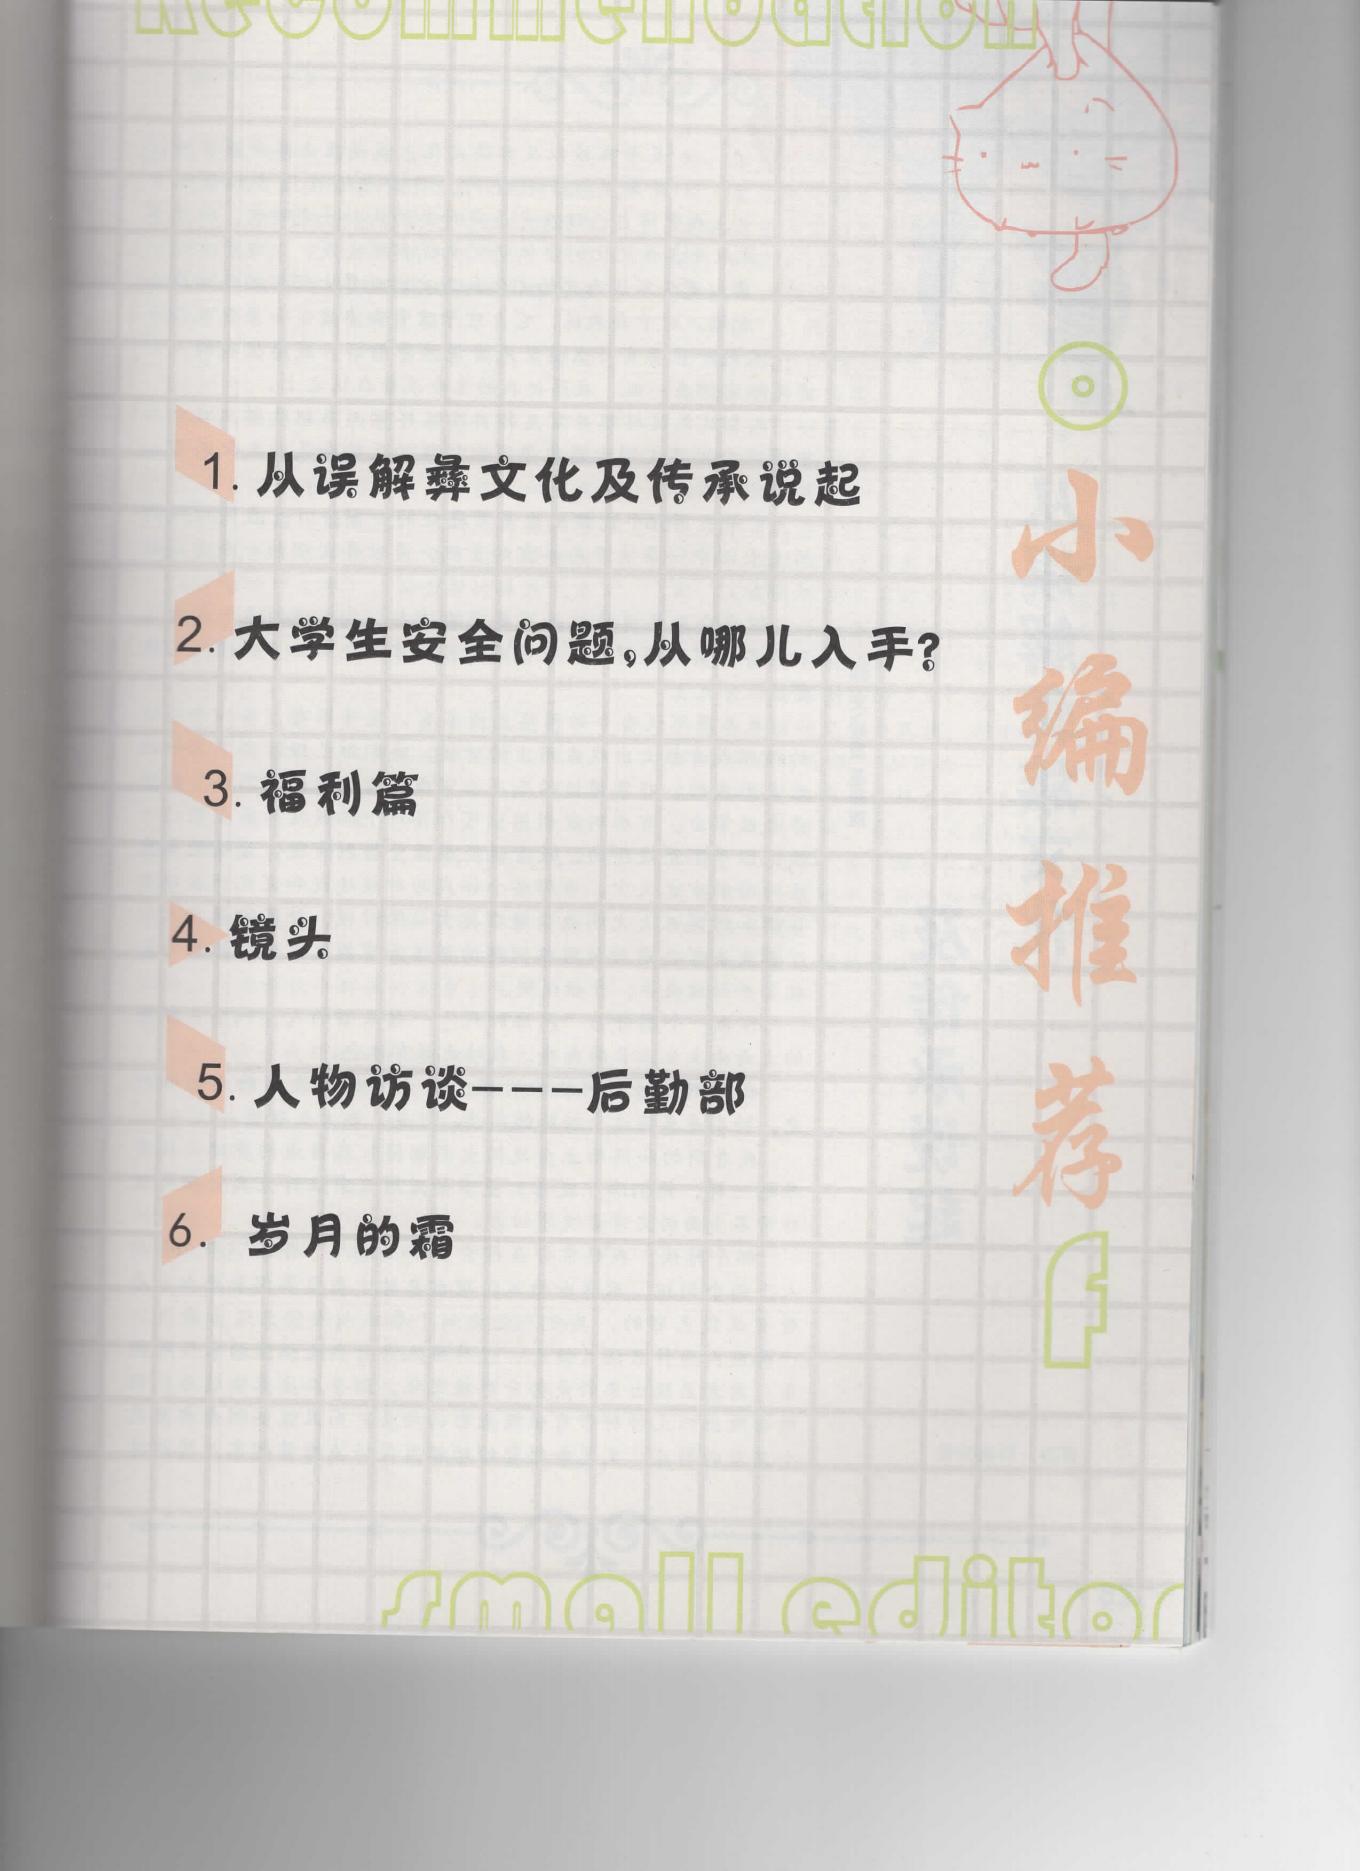 Recommendation
1. 从误解彝文化及传承说起
2. 大学生安全问题,从哪儿入手?
3. 福利篇
4. 镜头
5. 人物访谈---后勤部
6. 岁月的霜
小编推荐
f
small editor